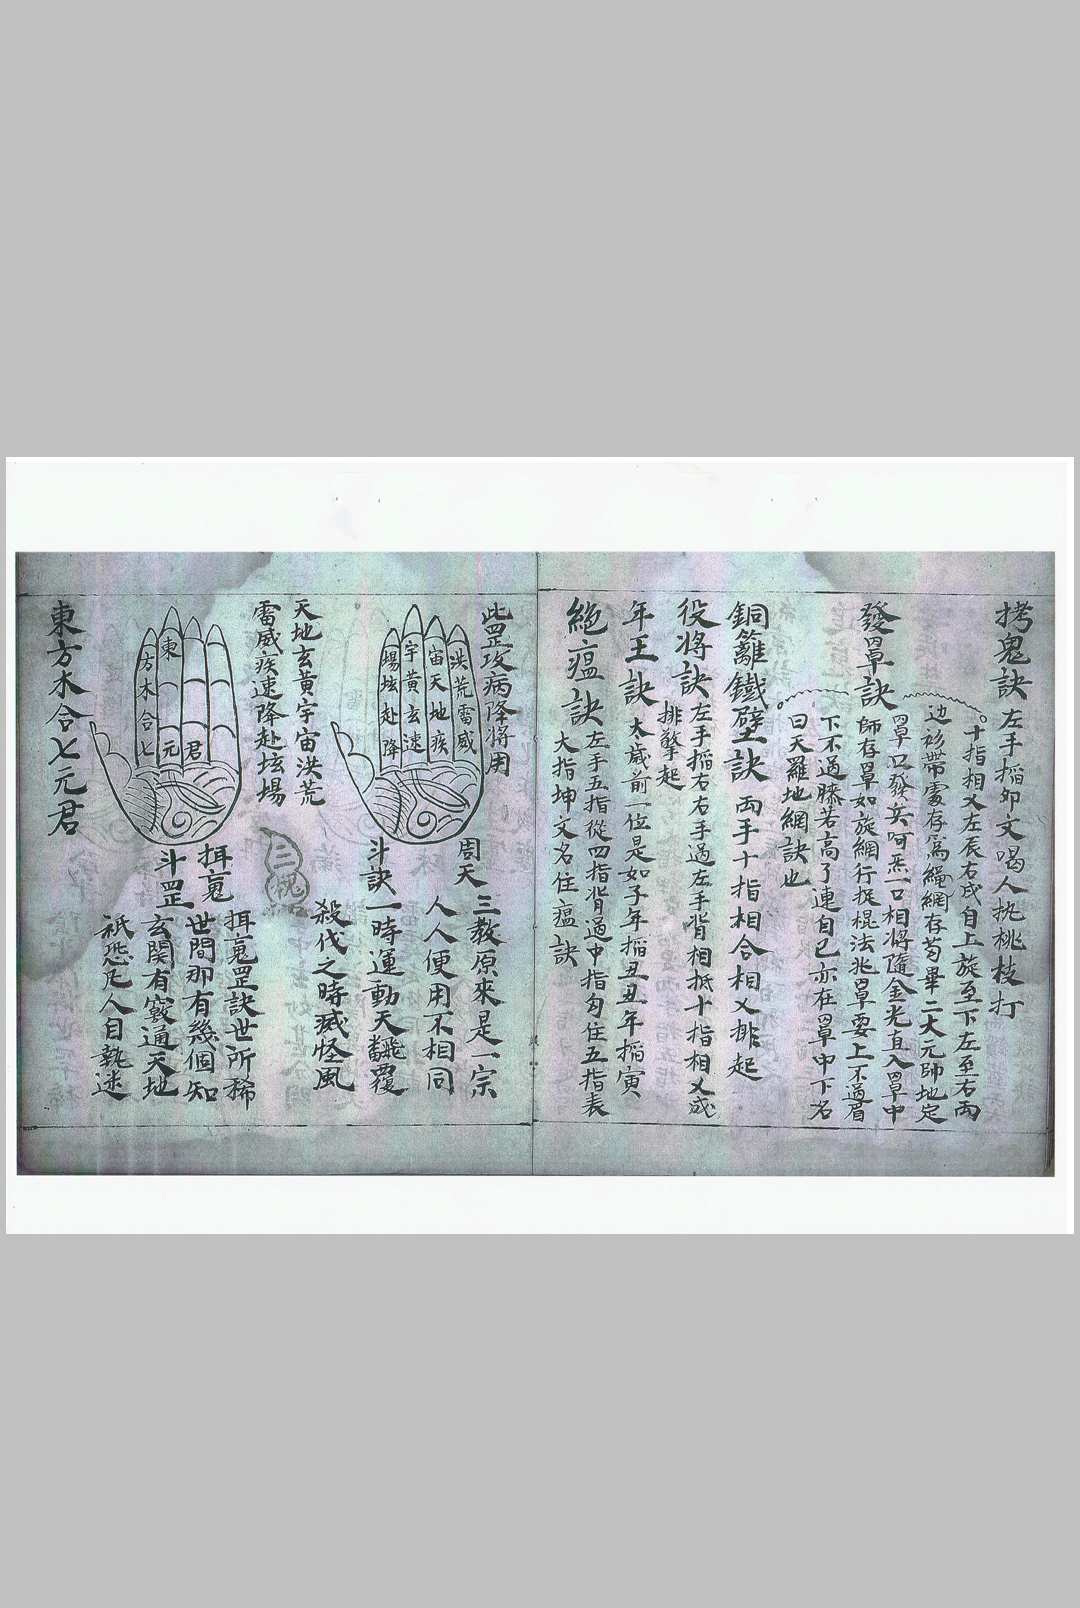 拷鬼訣
左手掐卯文喝人执桃枝打
發罩訣
十指相乂左辰右戌自上旋至下左至右兩
边衫帶處存為繩網存苟畢二大元帥地定
罩口發矣呵炁一口相將隨金光直入罩中
師存罩如旋網行捉棍法兆罩要上不過眉
下不過膝若高了連自己亦在罩中下名
曰天羅地網訣也
銅籬鐵壁訣
兩手十指相合相乂排起
役將訣
左手掐右右手過左手背相抵十指相乂或
排擎起
年王訣
太歲前一位是如子年掐丑丑年掐寅
絕瘟訣
左手五指從四指背過中指勾住五指表
大指坤文名住瘟訣
此罡攻病降將用
洪荒雷威
宙天地疾
宇黃玄速
場垓赴降
周天
斗訣
三教原來是一宗
人人便用不相同
一時運動天翻覆
殺伐之時滅怪風
天地玄黃宇宙洪荒
雷威疾速降赴垓場
君
東
元
方木合七
斗罡
罡訣世所稀
世間那有幾個知
玄關有竅通天地
祇恐凡人自執迷
東方木合七元君